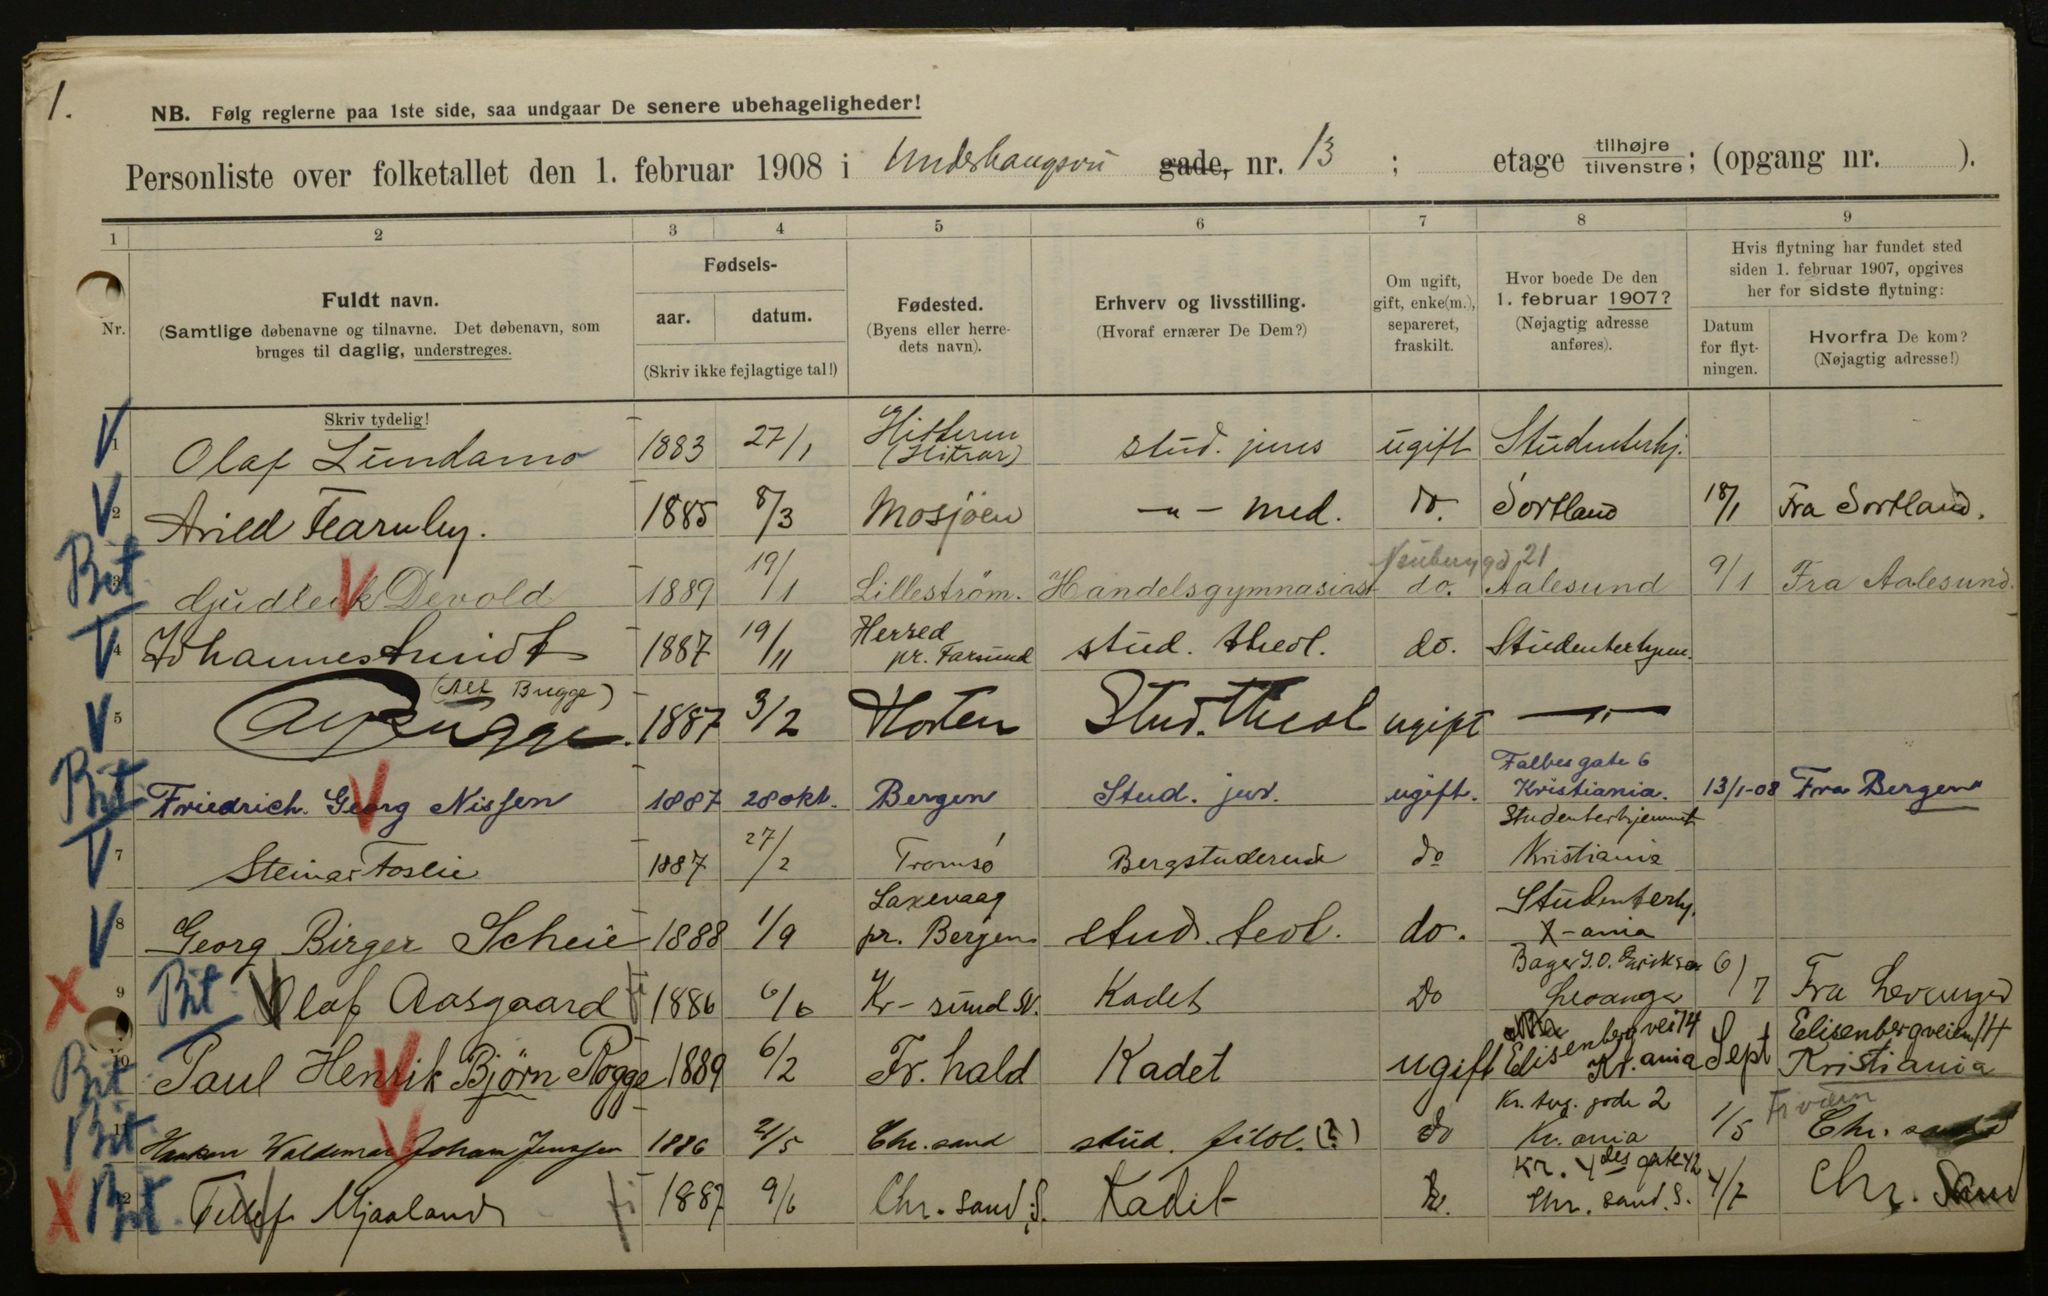 1.
NB. Følg reglerne paa 1ste side, saa undgaar De senere ubehageligheder!
Personliste over folketallet den 1. februar 1908 i Underhaugsvei gade, nr. 13 ; etage tilhøjre tilvenstre; (opgang nr. ).
1 2 3 4 5 6 7 8 9
Nr.
Fuldt navn.
(Samtlige døbenavne og tilnavne. Det døbenavn, som
bruges til daglig, understreges.
Skriv tydelig!
Fødsels-
aar. datum.
(Skriv ikke fejlagtige tal!)
Fødested.
(Byens eller herre-
dets navn).
Erhverv og livsstilling.
(Hvoraf ernærer De Dem?)
Om ugift,
gift, enke(m.),
separeret,
fraskilt.
Hvor boede De den
1. februar 1907?
(Nøjagtig adresse
anføres).
Hvis flytning har fundet sted
siden 1. februar 1907, opgives
her for sidste flytning:
Datum
for flyt-
ningen.
Hvorfra De kom?
(Nøjagtig adresse!)
V 1 Olaf Lundamo 1883 27/1 Hitteren (Hitrar) stud. jur ugift Studenterhj.
V 2 Arild Fearnley. 1885 8/3 Mosjöen -"- med. do. Sortland 18/1 Fra Sortland.
Bit 3 Gudleik Devold 1889 19/1 Lilleström. Handelsgymnasiast do. 21 Aalesund 9/1 Fra Aalesund.
V 4 Johannes Smidt 1887 19/11 Herred pr. Farsund stud. theol. do. Studenterhjem.
V 5 (Alf Bugge) Alf Bugge. 1887 3/2 Horten Stud. theol ugift -"-
Bit Friedrich Georg Nissen 1887 28 okt. Bergen Stud. jur. ugift. Falbesgate 6 Kristiania. 13/1-08 Fra Bergen
V 7 Steinar Foslie 1887 27/2 Tromsö Bergstuderende do Studenterhjemmet Kristiania
V 8 Georg Birger Scheie 1888 1/9 Laxevaag pr. Bergen stud. teol. do. Studenterhj. X-ania
X 9 Bit Olaf Aasgaard 1886 6/6 Kr-sund N. Kadet do Bager J.O. Eriksen Levanger 6/7 Fra Levanger
Bit 10 Paul Henrik Bjørn Rogge 1889 6/2 Fr. hald Kadet ugift Elisenbergvei 14 Kr.ania Sept Elisenbergveien 14 Kristiania
Bit 11 Haakon Waldemar Johan Jenssen 1886 21/5 Chr. sand stud. filol. (?) do Kr. Aug. gade 2 Kr. ania 1/5 Chr. sand
X Bit 12 Mjaaland 1887 9/6 Chr. sand. S. Kadet do. Kr. 4des gate 42 Chr. sand. S. 4/7 Chr. Sand